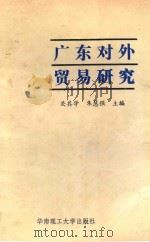 广东对外
贸易研究
关其学 朱慧强 主编
华南理工大学出版社